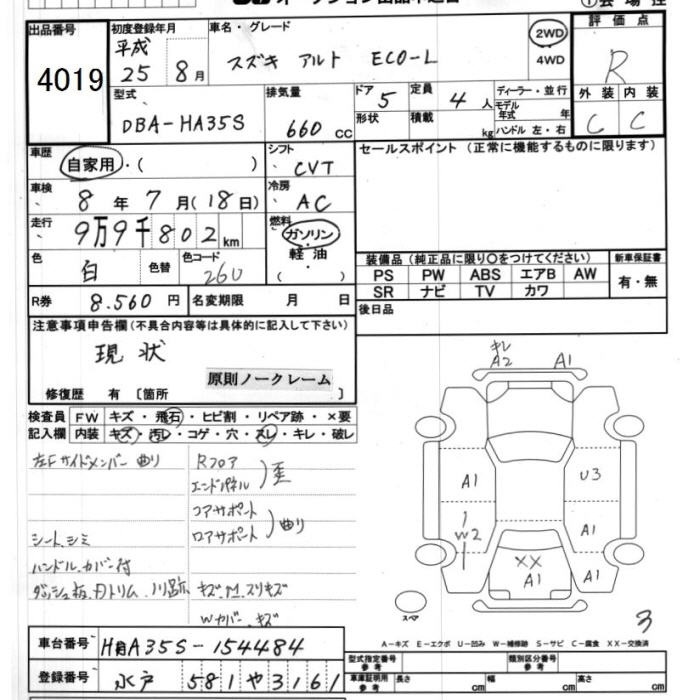 出品番号
4019
初度登録年月
平成
25 8月
車名・グレード
スズキ アルト ECO-L
2WD
4WD
評価点
R
外装 内装
C C
型式
DBA-HA35S
排気量
660 cc
ドア 5
定員 4 人
形状
積載 kg
ディーラー・並行
モデル年式 年
ハンドル 左・右
車歴
自家用・( )
シフト
CVT
セールスポイント (正常に機能するものに限ります)
車検
8 年 7 月(18日)
冷房
AC
走行
9万9千802 km
燃料
ガソリン
軽油
( )
色
白
色替
色コード
26U
R券 8.560 円
名変期限 月 日
装備品(純正品に限り○をつけてください)
新車保証書
PS PW ABS エアB AW
SR ナビ TV カワ
有・無
後日品
注意事項申告欄(不具合内容等は具体的に記入して下さい)
現状
原則ノークレーム
修復歴 有〔箇所 〕
検査員
記入欄
FW キズ・飛石・ヒビ割・リペア跡・×要
内装 キズ・汚レ・コゲ・穴・スレ・キレ・破レ
左Fサイドメンバー 曲り
Rフロア
エンドパネル 歪
コアサポート
ロアサポート 曲り
シート、シミ
ハンドル、カバー付
キズ、
キズ
キレ
A2 A1
A1
U3
W2
A1
××
A1
A1
スペア
3
A-キズ E-エクボ U-凹み W-補修跡 S-サビ C-腐食 XX-交換済
車台番号 HA35S-154484
登録番号 水戸 581や3161
型式指定番号
参考
類別区分番号
参考
車庫証明用
参考
長さ cm 幅 cm 高さ cm